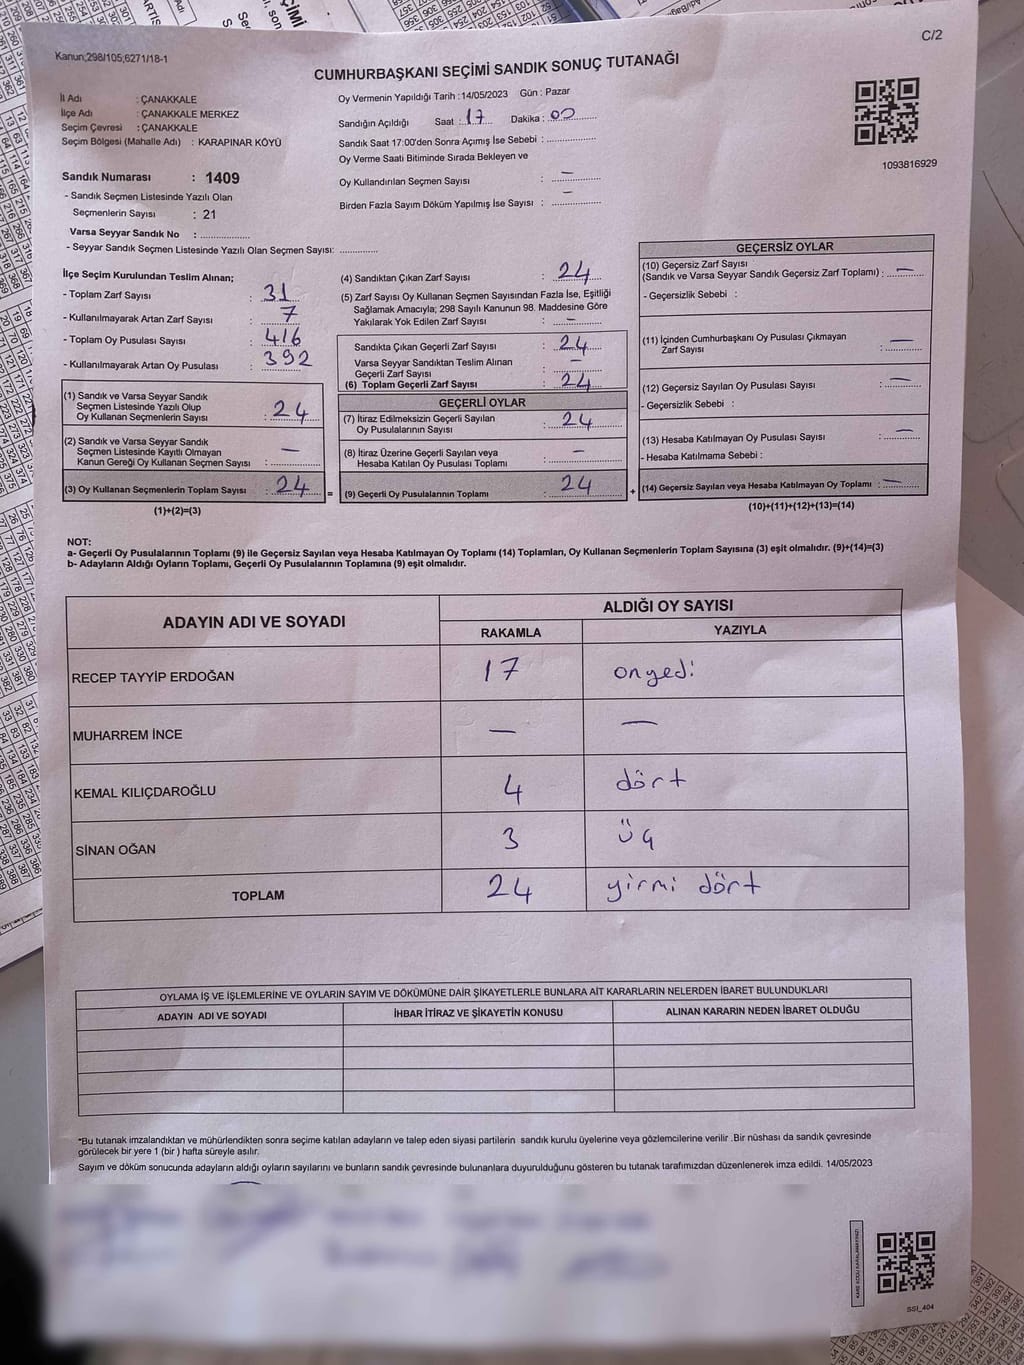 C/2
Kanun;298/105;6271/18-1
CUMHURBAŞKANI SEÇİMİ SANDIK SONUÇ TUTANAĞI
İl Adı : ÇANAKKALE
İlçe Adı : ÇANAKKALE MERKEZ
Seçim Çevresi : ÇANAKKALE
Seçim Bölgesi (Mahalle Adı) : KARAPINAR KÖYÜ
Sandık Numarası : 1409
- Sandık Seçmen Listesinde Yazılı Olan
Seçmenlerin Sayısı : 21
Varsa Seyyar Sandık No : ................
- Seyyar Sandık Seçmen Listesinde Yazılı Olan Seçmen Sayısı: .............
Oy Vermenin Yapıldığı Tarih :14/05/2023 Gün : Pazar
Sandığın Açıldığı Saat : 17 Dakika : 00
Sandık Saat 17:00'den Sonra Açımış İse Sebebi : ................
Oy Verme Saati Bitiminde Sırada Bekleyen ve
Oy Kullandırılan Seçmen Sayısı : —
Birden Fazla Sayım Döküm Yapılmış İse Sayısı : —
1093816929
İlçe Seçim Kurulundan Teslim Alınan;
- Toplam Zarf Sayısı : 31
- Kullanılmayarak Artan Zarf Sayısı : 7
- Toplam Oy Pusulası Sayısı : 416
- Kullanılmayarak Artan Oy Pusulası : 392
(1) Sandık ve Varsa Seyyar Sandık
Seçmen Listesinde Yazılı Olup
Oy Kullanan Seçmenlerin Sayısı : 24
(2) Sandık ve Varsa Seyyar Sandık
Seçmen Listesinde Kayıtlı Olmayan
Kanun Gereği Oy Kullanan Seçmen Sayısı : —
(3) Oy Kullanan Seçmenlerin Toplam Sayısı : 24
(1)+(2)=(3)
(4) Sandıktan Çıkan Zarf Sayısı : 24
(5) Zarf Sayısı Oy Kullanan Seçmen Sayısından Fazla İse, Eşitliği
Sağlamak Amacıyla; 298 Sayılı Kanunun 98. Maddesine Göre
Yakılarak Yok Edilen Zarf Sayısı : —
Sandıkta Çıkan Geçerli Zarf Sayısı : 24
Varsa Seyyar Sandıktan Teslim Alınan
Geçerli Zarf Sayısı : —
(6) Toplam Geçerli Zarf Sayısı : 24
GEÇERLİ OYLAR
(7) İtiraz Edilmeksizin Geçerli Sayılan
Oy Pusulalarının Sayısı : 24
(8) İtiraz Üzerine Geçerli Sayılan veya
Hesaba Katılan Oy Pusulası Toplamı : —
= (9) Geçerli Oy Pusulalarının Toplamı : 24
GEÇERSİZ OYLAR
(10) Geçersiz Zarf Sayısı
(Sandık ve Varsa Seyyar Sandık Geçersiz Zarf Toplamı) : —
- Geçersizlik Sebebi :
(11) İçinden Cumhurbaşkanı Oy Pusulası Çıkmayan
Zarf Sayısı : —
(12) Geçersiz Sayılan Oy Pusulası Sayısı : —
- Geçersizlik Sebebi :
(13) Hesaba Katılmayan Oy Pusulası Sayısı : —
- Hesaba Katılmama Sebebi :
+ (14) Geçersiz Sayılan veya Hesaba Katılmayan Oy Toplamı : —
(10)+(11)+(12)+(13)=(14)
NOT:
a- Geçerli Oy Pusulalarının Toplamı (9) ile Geçersiz Sayılan veya Hesaba Katılmayan Oy Toplamı (14) Toplamları, Oy Kullanan Seçmenlerin Toplam Sayısına (3) eşit olmalıdır. (9)+(14)=(3)
b- Adayların Aldığı Oyların Toplamı, Geçerli Oy Pusulalarının Toplamına (9) eşit olmalıdır.
ADAYIN ADI VE SOYADI ALDIĞI OY SAYISI
RAKAMLA YAZIYLA
RECEP TAYYİP ERDOĞAN 17 onyedi
MUHARREM İNCE — —
KEMAL KILIÇDAROĞLU 4 dört
SİNAN OĞAN 3 üç
TOPLAM 24 yirmi dört
OYLAMA İŞ VE İŞLEMLERİNE VE OYLARIN SAYIM VE DÖKÜMÜNE DAİR ŞİKAYETLERLE BUNLARA AİT KARARLARIN NELERDEN İBARET BULUNDUKLARI
ADAYIN ADI VE SOYADI İHBAR İTİRAZ VE ŞİKAYETİN KONUSU ALINAN KARARIN NEDEN İBARET OLDUĞU
*Bu tutanak imzalandıktan ve mühürlendikten sonra seçime katılan adayların ve talep eden siyasi partilerin sandık kurulu üyelerine veya gözlemcilerine verilir .Bir nüshası da sandık çevresinde
görülecek bir yere 1 (bir ) hafta süreyle asılır.
Sayım ve döküm sonucunda adayların aldığı oyların sayılarını ve bunların sandık çevresinde bulunanlara duyurulduğunu gösteren bu tutanak tarafımızdan düzenlenerek imza edildi. 14/05/2023
KARE KODU KARALAMAYINIZ!
SSI_404